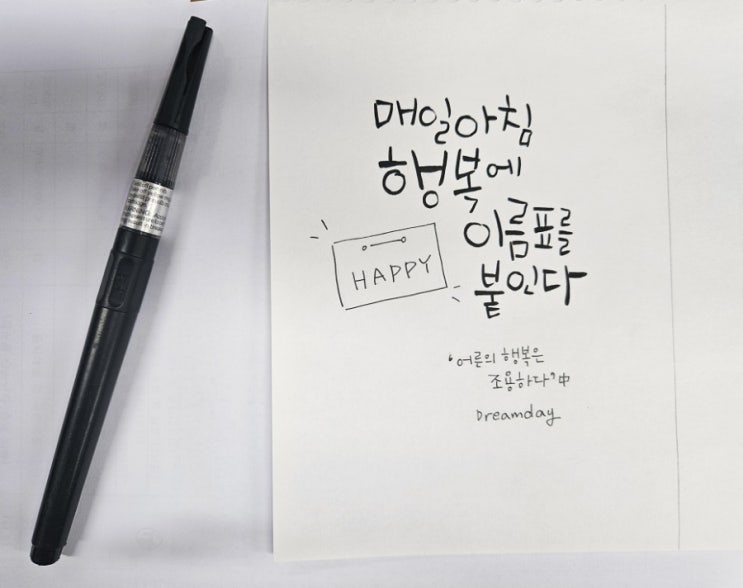 매일아침
행복에
이름표를
붙인다
HAPPY
'어른의 행복은
조용하다' 中
Dreamday